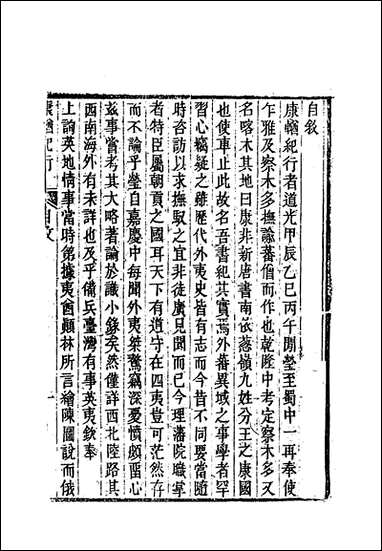 自敘
康輶紀行者道光甲辰乙巳丙午間瑩至蜀中一再奉使
乍雅及察木多撫諭蕃僧而作也乾隆中考定察木多又
名喀木其地曰康非新唐書南依葱嶺九姓分王之康國
也使車止此故名吾書紀其實焉外蕃異域之事學者罕
習心竊疑之雖歷代外夷史皆有志而今昔不同要當隨
時咨訪以求撫馭之宜非徒廣見聞而已今理藩院職掌
者特臣屬朝貢之國耳天下有道守在四夷豈可茫然存
而不論乎瑩自嘉慶中每聞外夷桀驁竊深憂憤頗留心
茲事嘗考其大略著論於識小錄矣然僅詳西北陸路其
西南海外有未詳也及乎備兵臺灣有事英夷欽奉
上諭英地情事當時第據夷酋顛林所言繪陳圖說而俄
康輶紀行 自敘 一